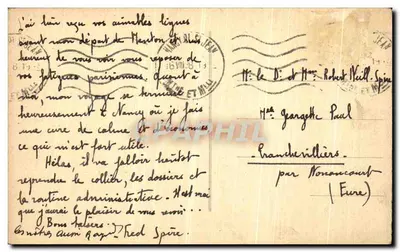 J'ai bien reçu vos aimables lignes
avant mon départ de Menton et suis
heureux de vous voir vous reposer de
vos fatigues parisiennes, quant à
moi, mon voyage se termine
heureusement à Nancy où je fais
une cure de calme et d'économies
ce qui m'est fort utile.
Hélas, il va falloir bientôt
reprendre le collier, les dossiers et
la routine administrative. Il est vrai
que j'aurai le plaisir de vous revoir...
Bons baisers
Fred Spire
Mr le Dr et Mme Robert Neill-Spire
Georgette Paul
Franchevilliers
par Nonancourt
(Eure)
DELCAMPE